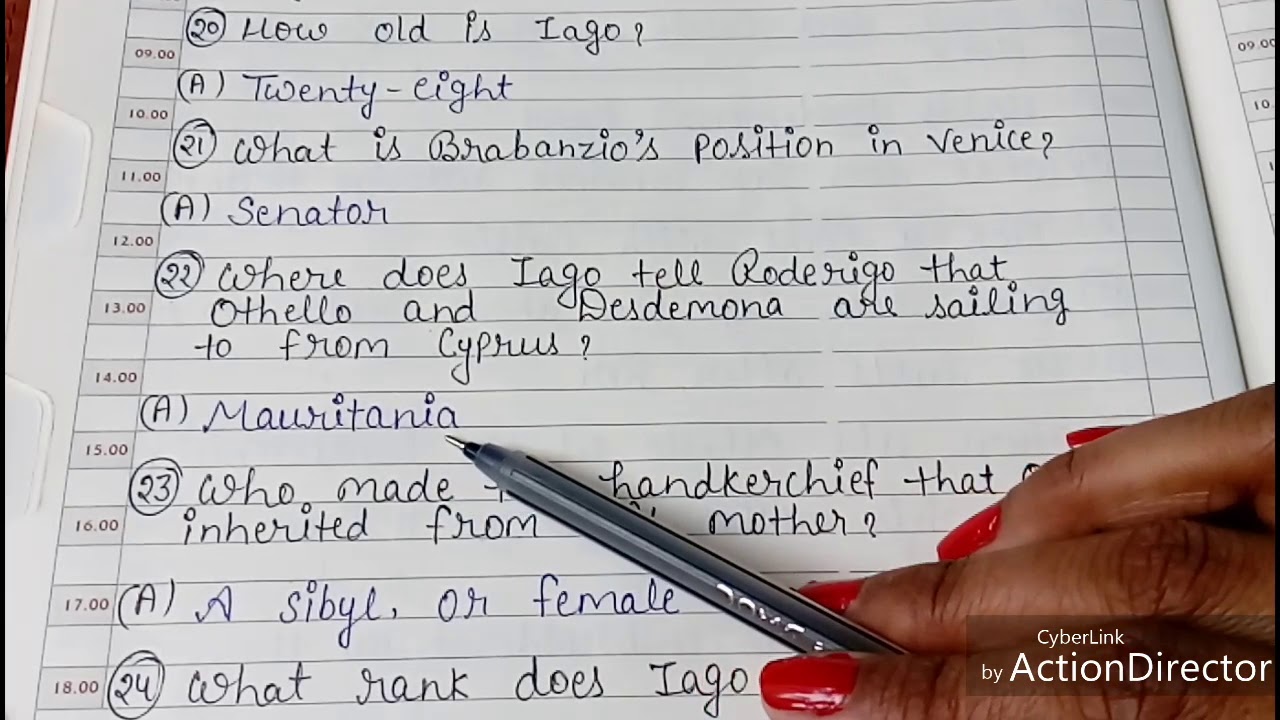 20 How old is Iago?
09.00
(A) Twenty-eight
10.00
21 What is Brabanzio's position in Venice?
11.00
(A) Senator
12.00
22 Where does Iago tell Roderigo that
13.00 Othello and Desdemona are sailing
to from Cyprus?
14.00
(A) Mauritania
15.00
23 Who made handkerchief that
16.00 inherited from mother?
17.00 (A) A sibyl, or female
18.00 24 What rank does Iago
09.00
CyberLink
by ActionDirector